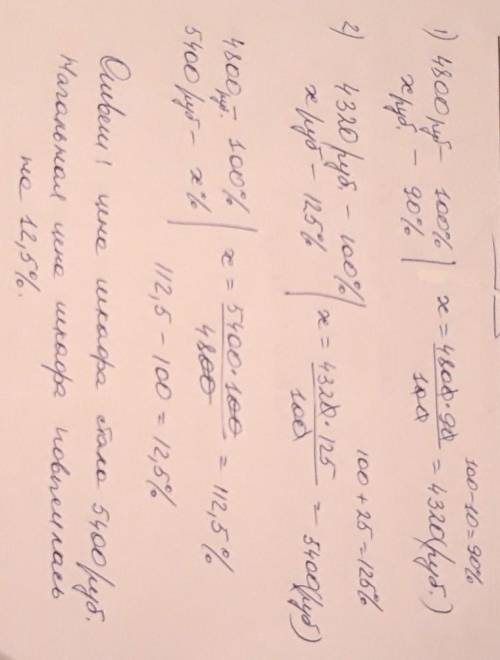 100-10=90%
1) 4800 руб - 100% | x = 4800·90 / 100 = 4320(руб.)
x руб. - 90%
100+25=125%
2) 4320 руб - 100% | x = 4320·125 / 100 = 5400(руб)
x руб - 125%
4800 руб. - 100% | x = 5400·100 / 4800 = 112,5%
5400 руб - x%
112,5 - 100 = 12,5%
Ответ: цена шкафа стала 5400 руб.
Начальная цена шкафа повысилась
на 12,5%.